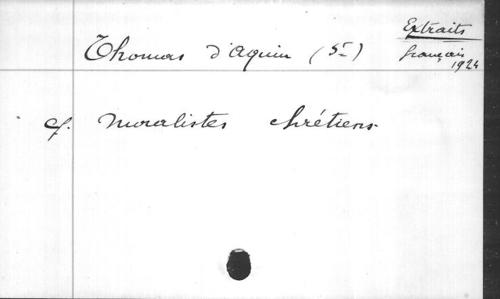 Extraits
Thomas d'Aquin (St)
français
1924
cf. Moralistes chrétiens